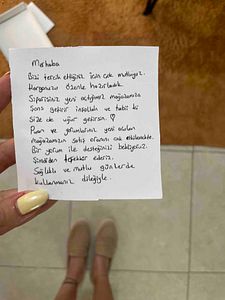 Merhaba
Bizi tercih ettiğiniz için çok mutluyuz.
Kargonuzu özenle hazırladık.
Siparişiniz yeni açtığımız mağazamıza
şans getirir inşallah ve tabii ki
size de uğur getirsin. ♡
Puan ve yorumlarınız yeni açılan
mağazamızın satış oranını çok etkilemekte.
Bir yorum ile desteğinizi bekliyoruz.
Şimdiden teşekkür ederiz.
Sağlıklı ve mutlu günlerde
kullanmanız dileğiyle.